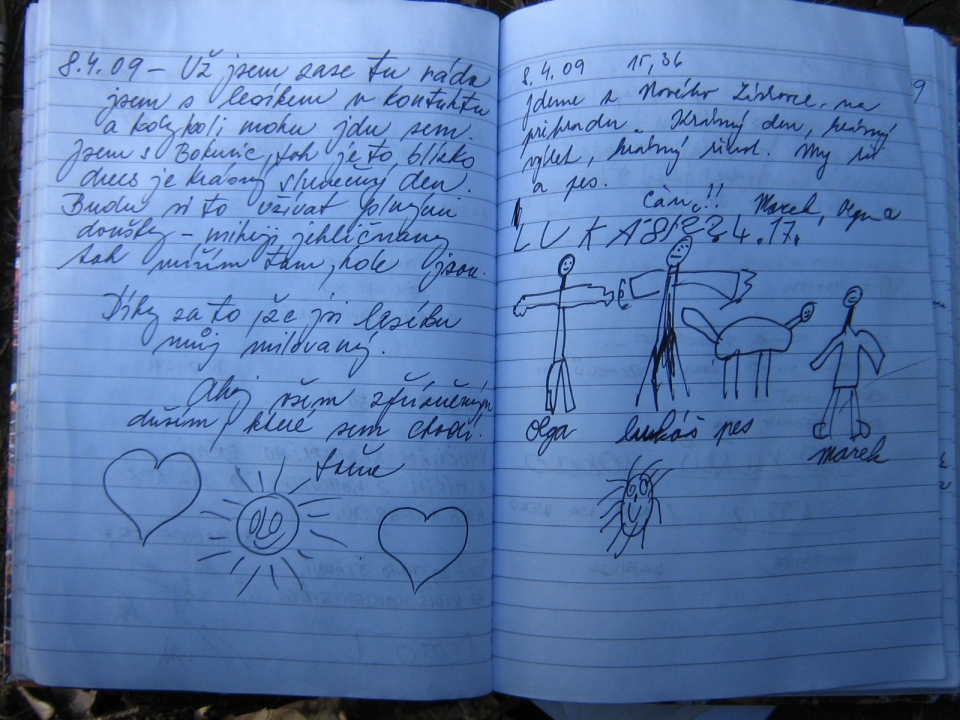 8.4.09 – Už jsem zase tu ráda
jsem s lesíkem v kontaktu
a kdykoli mohu jdu sem.
Jsem s , tak je to blízko
dnes je krásný slunečný den.
Budu si to užívat plnými
doušky – miluji jehličnany
tak mířím tam, kde jsou.
Díky za to že jsi lesíku
můj milovaný.
Ahoj všem spřízněným
duším, které sem chodí!
8.4.09 15,36
jdeme z Nového , na
přehradu. Krásný den, krásný
výlet, krásný . My tři
a pes.
Marek, Olga
LUKÁŠ 4.17.
Olga lukáš pes
marek
9